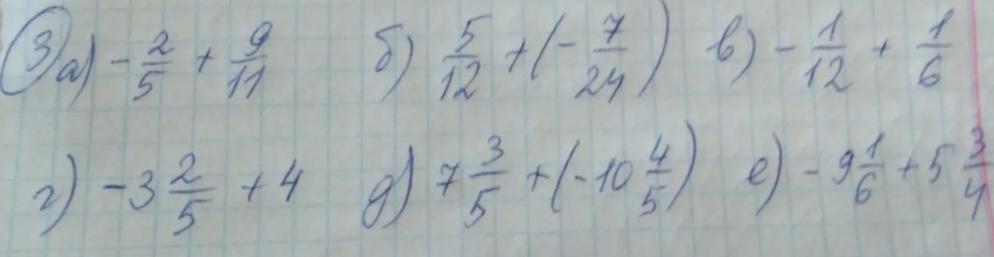 3 а) -2/5 + 9/11 б) 5/12 + (-7/24) в) -1/12 + 1/6
г) -3 2/5 + 4 д) 7 3/5 + (-10 4/5) е) -9 1/6 + 5 3/4